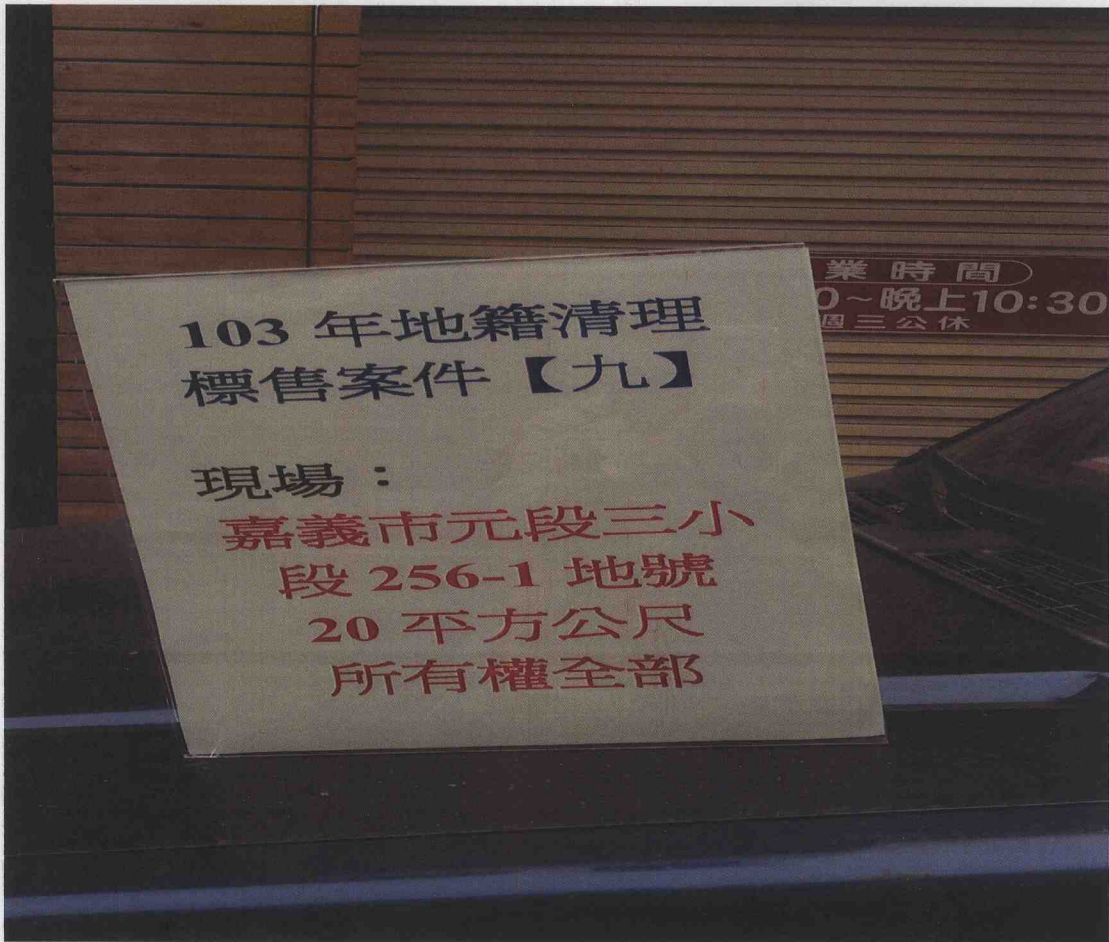 103 年地籍清理
標售案件【九】
現場：
嘉義市元段三小
段 256-1 地號
20 平方公尺
所有權全部
業時間
0～晚上10:30
週三公休